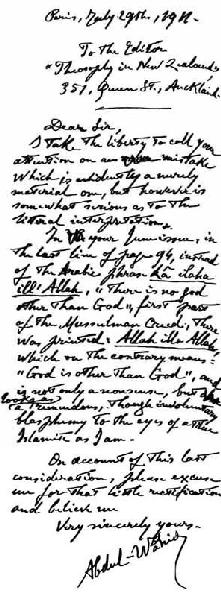 Paris, July 29th, 191
To the Editor
"Theosophy in New Zealand"
351, Queen St., Auckland.
Dear Sir,
I take the liberty to call your
attention on an mistake
which is evidently a purely
material one, but however is
somewhat serious as to the
literal interpretation.
In your June issue, in
the last line of page 94, instead
of the Arabic phrase La ilaha
ill' Allah, "There is no god
other than God", first part
of the Mussulman Creed, there
was printed: Allah illa Allah
which on the contrary means:
"God is other than God", and
is not only a nonsense, but
a tremendous, though involuntary
blasphemy to the eyes of a true
Islamite as I am.
On account of this last
consideration, please excuse
me for that little rectification
and believe me
Very sincerely yours.
Abdul-Wahid